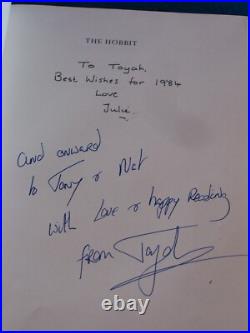 THE HOBBIT
To Toyah,
Best Wishes for 1984
Love
Julie
And onward
to Tony & Nat
with Love & happy Reading
from Toyah